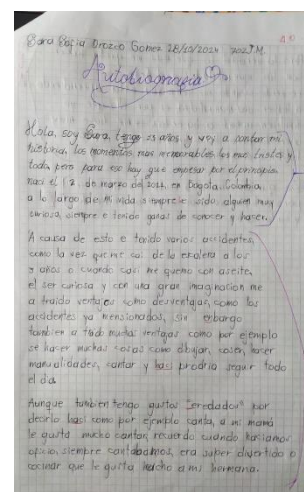 Sara Sofia Orozco Gomez 28/10/2024 702 J.M.
Autobiografia
Hola, soy Sara, tengo 13 años y voy a contar mi
historia, los momentos mas memorables los mas tristes y
todo, pero para eso hay que empesar por el principio
naci el 18 de marzo de 2011, en Bogota, Colombia,
a lo largo de mi vida siempre e sido alguien muy
curiosa, siempre e tenido ganas de conocer y hacer.
A causa de esto e tenido varios accidentes,
como la vez que me cai de la escalera a los
3 años o cuando casi me quemo con aceite,
el ser curiosa y con una gran imaginacion me
a traido ventajas como desventajas, como los
accidentes ya mencionados, sin enbargo
tambien a traido muchas ventajas como por ejemplo
se hacer muchas cosas como dibujar, coser, hacer
manualidades, cantar y hasi prodria seguir todo
el dia.
Aunque tambien tengo gustos "eredados" por
decirlo hasi como por ejemplo cantar, a mi mamá
le gusta mucho cantar, recuerdo cuando haciamos
oficio, siempre cantabamos, era super divertido o
cocinar que le gusta mucho a mi hermana.